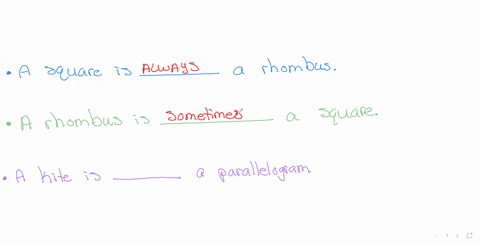 • A square is ALWAYS a rhombus.
• A rhombus is sometimes a square.
• A kite is ______ a parallelogram